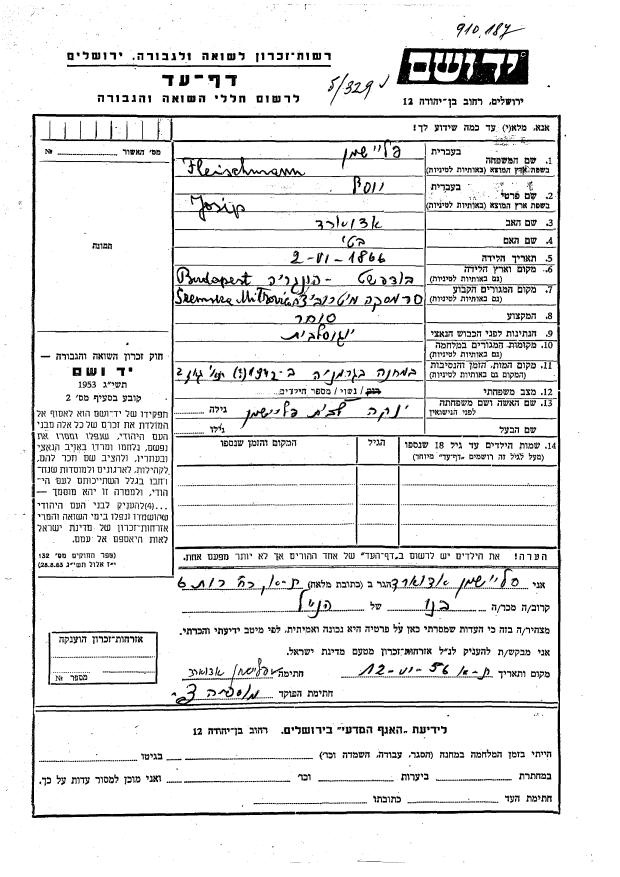 910.187
ידושם
ירושלים, רחוב בן־יהודה 12
רשות־זכרון לשואה ולגבורה, ירושלים
דף־עד
לרשום חללי השואה והגבורה
329/
אנא, מלא(י) עד כמה שידוע לך!
מס׳ האשור № 
תמונה
1. שם המשפחה
בעברית
פליישמן
בשפת ארץ המוצא (באותיות לטיניות)
Fleischmann
2. שם פרטי
בעברית
יוסף
בשפת ארץ המוצא (באותיות לטיניות)
Josip
3. שם האב
אדוארד
4. שם האם
בטי
5. תאריך הלידה
2-VI-1866
6. מקום וארץ הלידה
(גם באותיות לטיניות)
בודפשט - הונגריה Budapest
7. מקום המגורים הקבוע
(גם באותיות לטיניות)
סרמסקה מיטרוביצה Sremska Mitrovica
8. המקצוע
סוחר
9. הנתינות לפני הכבוש הנאצי
יוגוסלבית
10. מקומות המגורים במלחמה
11. מקום המות, הזמן והנסיבות
(המקום גם באותיות לטיניות)
במחנה בגרמניה ב-1942(?)
12. מצב משפחתי
רוק/ נשוי / מספר הילדים
13. שם האשה ושם משפחתה
לפני הנישואין
ינקה לבית פליישמן
גילה
שם הבעל
גילו
14. שמות הילדים עד גיל 18 שנספו
(מעל לגיל זה רושמים ״דף־עד״ מיוחד)
הגיל
המקום והזמן שנספו
חוק זכרון השואה והגבורה —
יד ושם
תשי״ג 1953
קובע בסעיף מס׳ 2
תפקידו של יד־ושם הוא לאסוף אל
המולדת את זכרם של כל אלה מבני
העם היהודי, שנפלו ומסרו את
נפשם, נלחמו ומרדו באויב הנאצי
ובעוזריו, ולהציב שם וזכר להם,
לקהילות, לארגונים ולמוסדות שנח־
רבו בגלל השתייכותם לעם הי־
הודי, ולמטרה זו יהא מוסמך —
...(4)להעניק לבני העם היהודי
שהושמדו ונפלו בימי השואה והמרי
אזרחות־זכרון של מדינת ישראל
לאות היאספם אל עמם.
(ספר החוקים מס׳ 132
י״ז אלול תשי״ג 28.8.53)
הערה! את הילדים יש לרשום ב״דף־העד״ של אחד ההורים אך לא יותר מפעם אחת.
אני פליישמן אדוארד הגר ב (כתובת מלאה) ת-א, רות 6
קרוב/ה מכר/ה בנו של הנ״ל
מצהיר/ה בזה כי העדות שמסרתי כאן על פרטיה היא נכונה ואמיתית, לפי מיטב ידיעתי והכרתי.
אני מבקש/ת להעניק לנ״ל אזרחות־זכרון מטעם מדינת ישראל.
מקום ותאריך ת-א 12-VI-56 חתימה פליישמן אדוארד
חתימת הפוקד
אזרחות־זכרון הוענקה
מספר №
לידיעת ״האגף המדעי״ בירושלים, רחוב בן־יהודה 12
הייתי בזמן המלחמה במחנה (הסגר, עבודה, השמדה וכו׳) בגיטו
במחתרת ביערות וכו׳ ואני מוכן למסור עדות על כך.
חתימת העד כתובתו